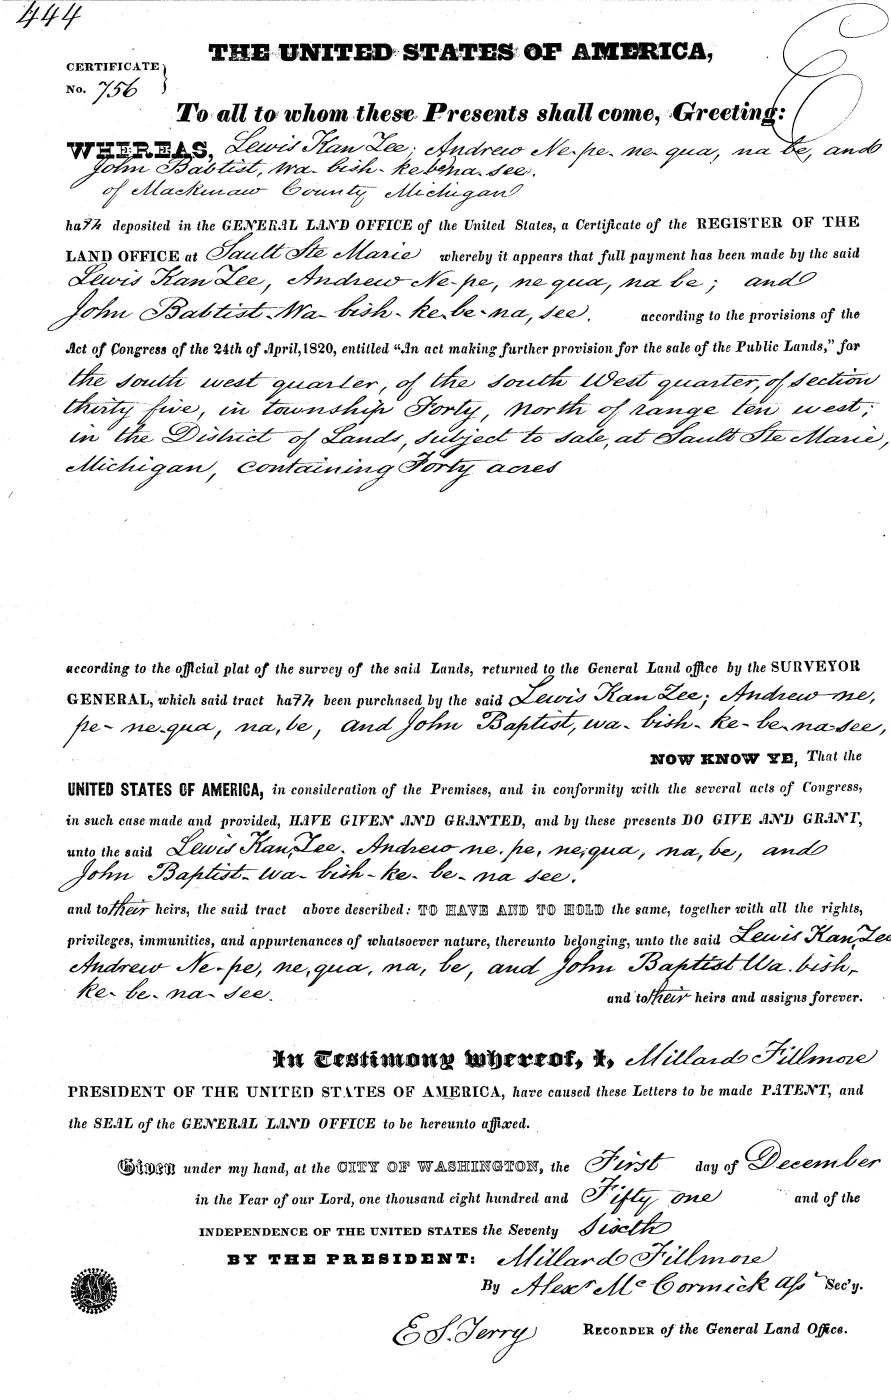 444
THE UNITED STATES OF AMERICA,
CERTIFICATE
No. 756
To all to whom these Presents shall come, Greeting:
WHEREAS, Lewis Kan Zee; Andrew Ne-pe-ne-qua, na be, and
John Babtist, wa-bish-ke be na-see.
of Mackinaw County Michigan
hath deposited in the GENERAL LAND OFFICE of the United States, a Certificate of the REGISTER OF THE
LAND OFFICE at Sault Ste Marie whereby it appears that full payment has been made by the said
Lewis Kan Zee, Andrew Ne-pe, ne qua, na be; and
John Babtist-Wa-bish-ke-be-na, see. according to the provisions of the
Act of Congress of the 24th of April, 1820, entitled "An act making further provision for the sale of the Public Lands," for
the south west quarter, of the south West quarter, of section
thirty five, in township Forty, North of range ten west;
in the District of Lands, subject to sale, at Sault Ste Marie,
Michigan, containing Forty acres
according to the official plat of the survey of the said Lands, returned to the General Land office by the SURVEYOR
GENERAL, which said tract hath been purchased by the said Lewis Kan Zee; Andrew ne,
pe-ne-qua, na, be, and John Baptist, wa-bish-ke-be-na-see,
NOW KNOW YE, That the
UNITED STATES OF AMERICA, in consideration of the Premises, and in conformity with the several acts of Congress,
in such case made and provided, HAVE GIVEN AND GRANTED, and by these presents DO GIVE AND GRANT,
unto the said Lewis Kan, Zee. Andrew ne, pe, ne, qua, na, be, and
John Baptist-wa-bish-ke-be-na see.
and to their heirs, the said tract above described: TO HAVE AND TO HOLD the same, together with all the rights,
privileges, immunities, and appurtenances of whatsoever nature, thereunto belonging, unto the said Lewis Kan, Zee
Andrew Ne-pe, ne, qua, na, be, and John Baptist Wa-bish-
ke-be-na-see. and to their heirs and assigns forever.
In Testimony whereof, I, Millard Fillmore
PRESIDENT OF THE UNITED STATES OF AMERICA, have caused these Letters to be made PATENT, and
the SEAL of the GENERAL LAND OFFICE to be hereunto affixed.
Given under my hand, at the CITY OF WASHINGTON, the First day of December
in the Year of our Lord, one thousand eight hundred and Fifty one and of the
INDEPENDENCE OF THE UNITED STATES the Seventy Sixth
BY THE PRESIDENT: Millard Fillmore
By Alexr McCormick Asst Sec'y.
E S. Terry RECORDER of the General Land Office.